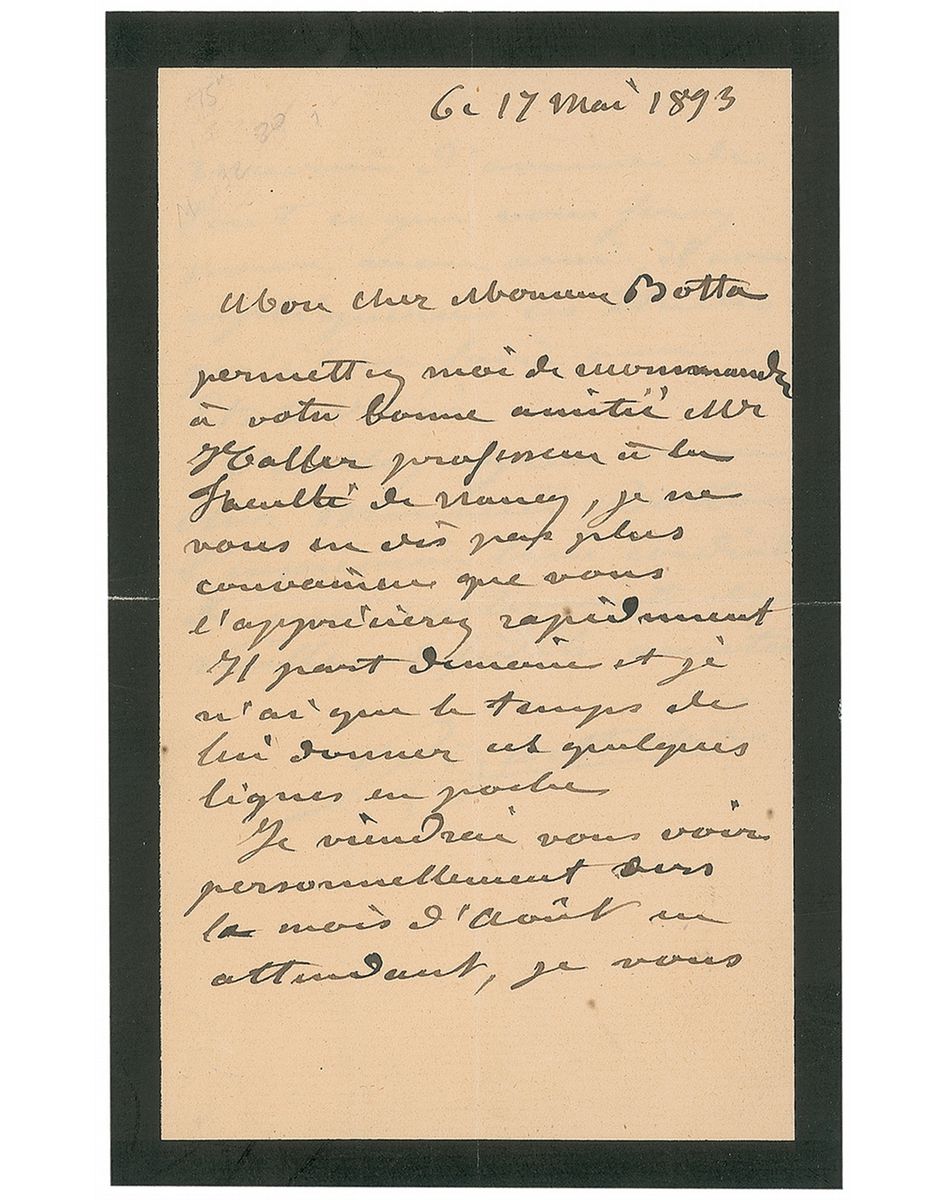 Le 17 Mai 1893
Mon cher Monsieur Botta
permettez moi de recommander
à votre bonne amitié Mr
Haller professeur à la
Faculté de Nancy, je ne
vous en dis pas plus
convaincu que vous
l'apprécierez rapidement
Il part demain et je
n'ai que le temps de
lui donner ces quelques
lignes en poche
Je viendrai vous voir
personnellement vers
le mois d'Août en
attendant, je vous